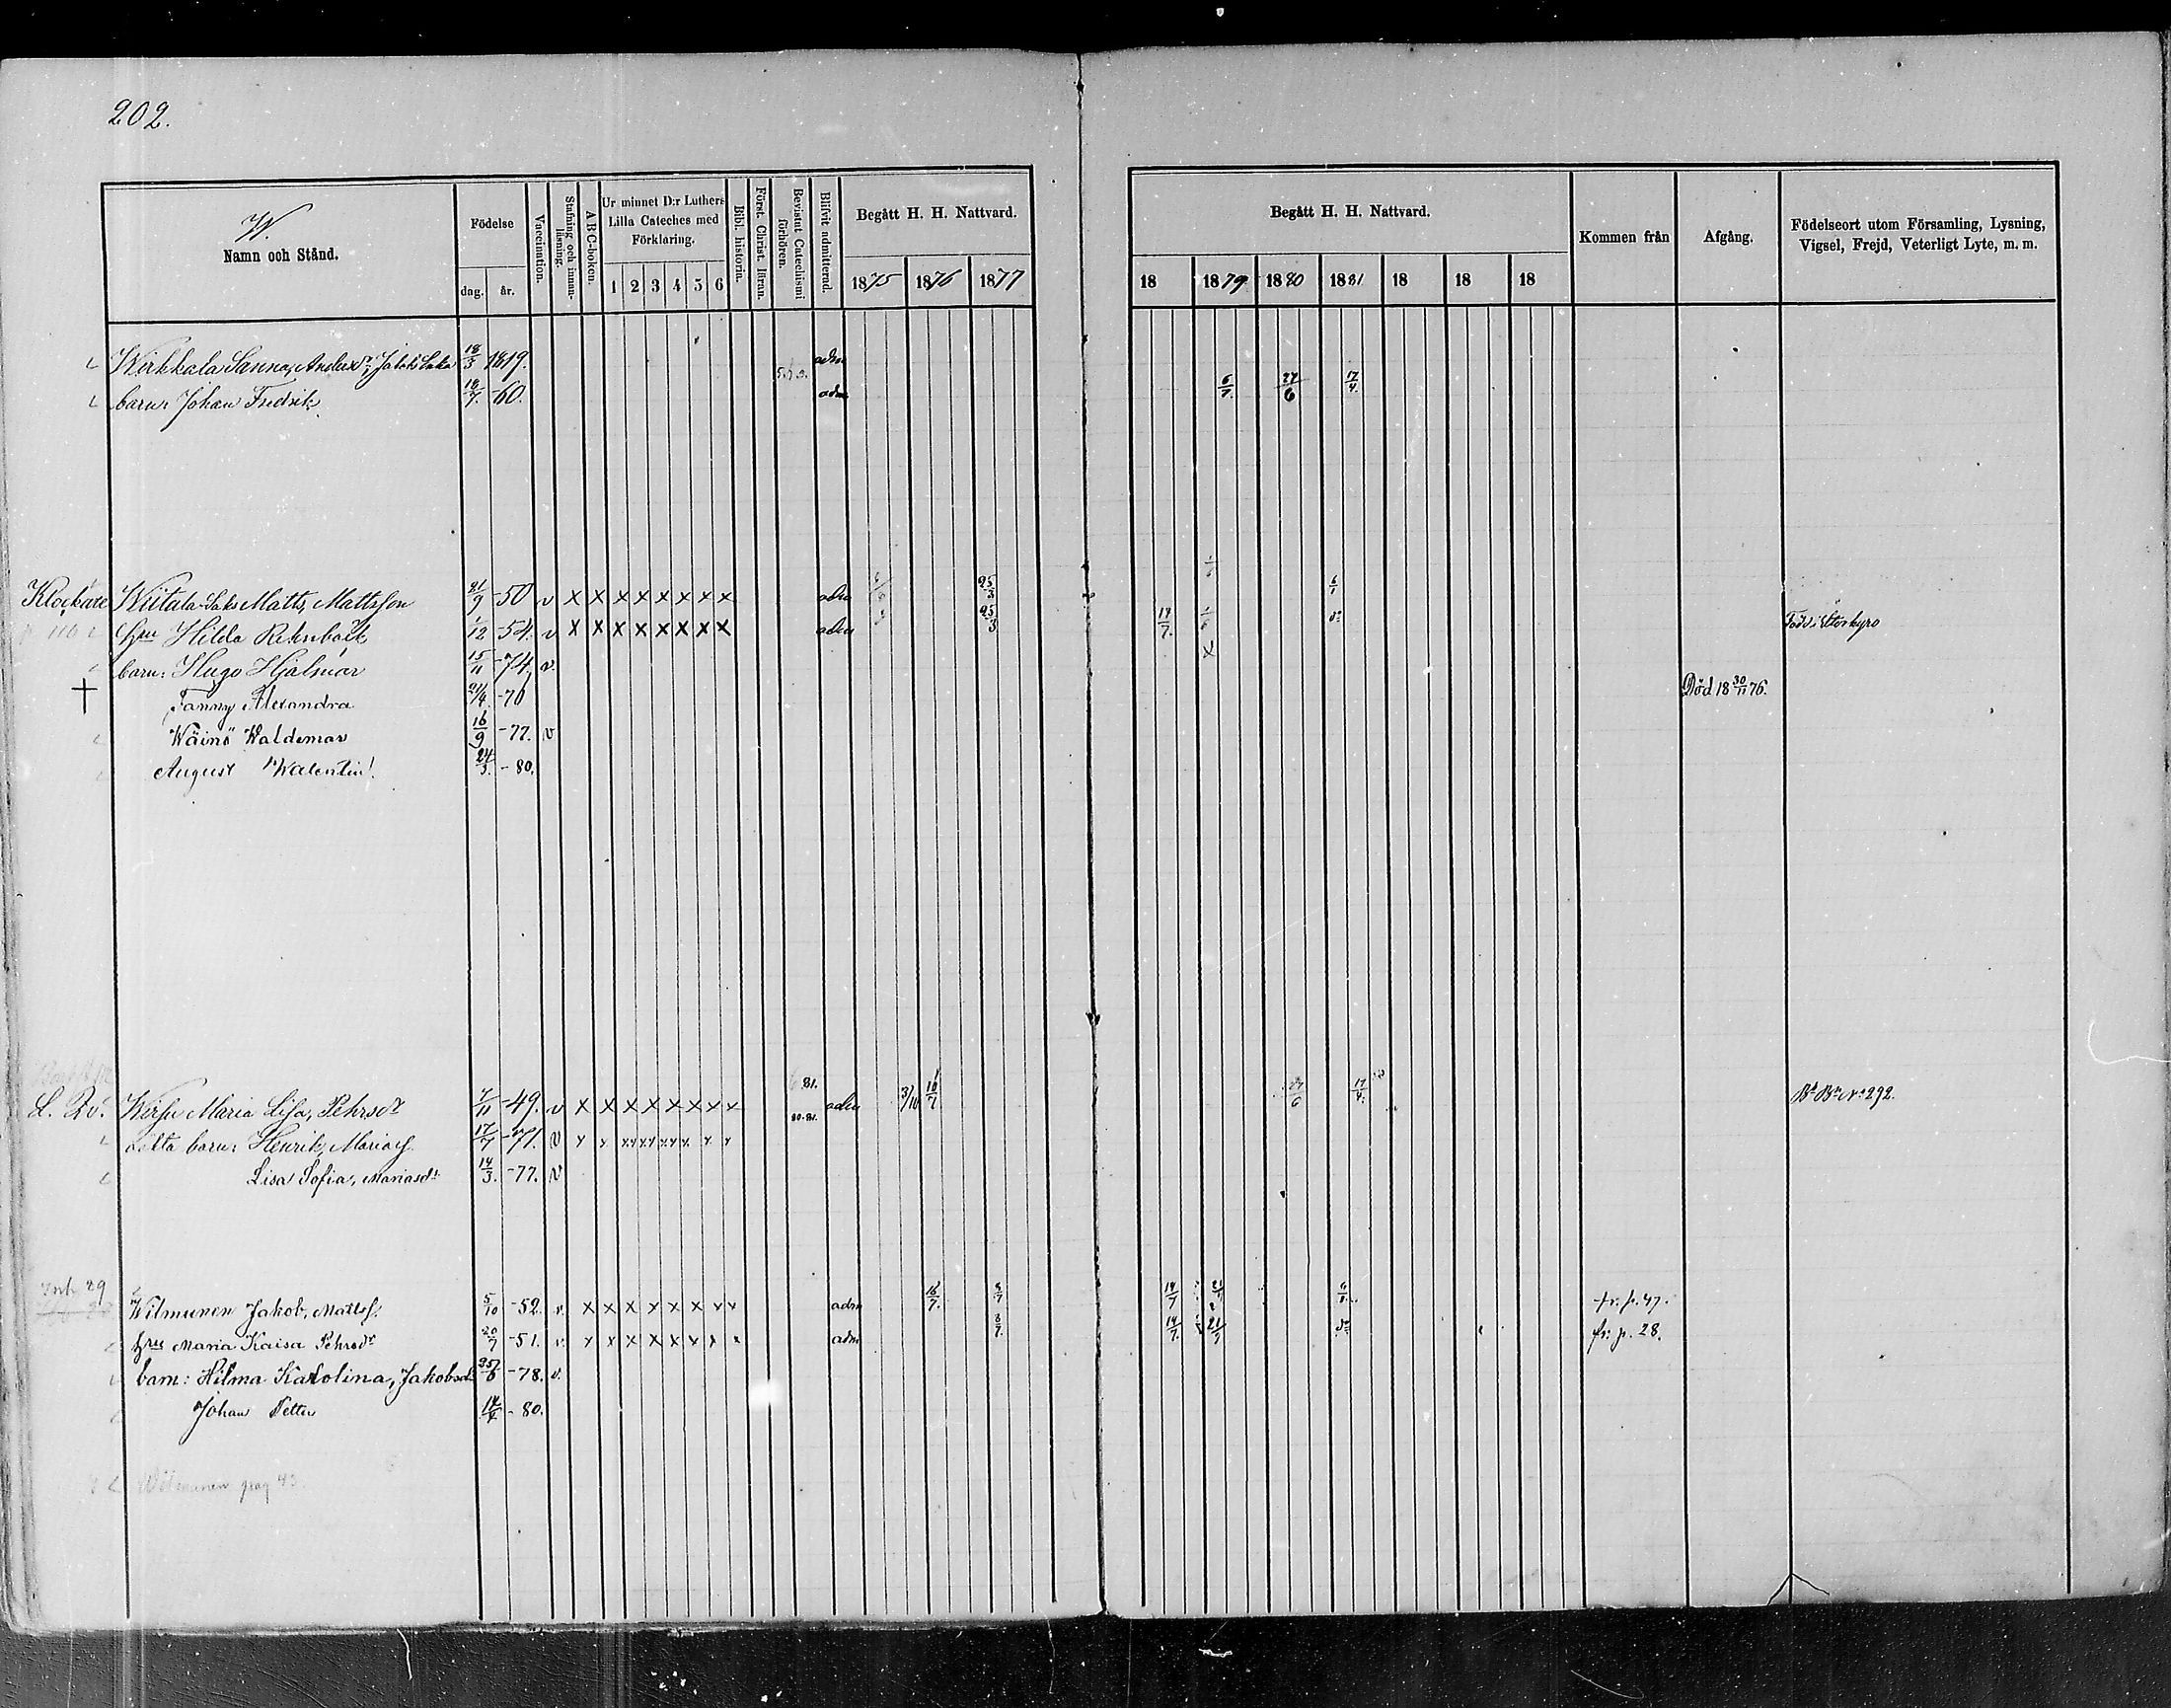 202.
W.
Namn och Stånd.
Födelse
dag. år.
Vaccination.
Stafning och innanläsning.
A B C-boken.
Ur minnet D:r Luthers Lilla Cateches med Förklaring.
1 2 3 4 5 6
Bibl. historia.
Först. Christ. läran.
Bevistat Catechismi förhören.
Blifvit admitterad.
Begått H. H. Nattvard.
1875 1876 1877
Begått H. H. Nattvard.
18 1879 1880 1881 18 18 18
Kommen från
Afgång.
Födelseort utom Församling, Lysning, Vigsel, Frejd, Veterligt Lyte, m. m.
Wirkkala Sanna, 18/3 1819. adm
barn: Johan Fredrik 18/7. -60. adm 6/7. 27/6 17/4.
Klockare Wiitala Matts, Mattsson 21/9 -50 v x x x x x x x x adm 25/3 6/1
Hilda 1/12 -54. v x x x x x x x x adm 25/3 17/7. Född i Storkyro
barn: Hugo Hjalmar 15/11 -74. v. x
† Fanny Alexandra -76 Död 18 30/11 76.
Wäinö Waldemar 16/9 -77. v
August Walentin 24/3. - 80.
Maria Lisa, Pehrsdr 7/11 -49. v x x x x x x x x 81. adm 3/10 10/7 17/4. No 292.
80.81.
barn: Henrik, Marias. 17/7 -71. v
Lisa Sofia, Mariasdr 14/3. -77. v
Wilmunen Jakob, Mattss. 5/10 -52. v. x x x x x x x x adm 16/7. 8/7 14/7 fr. p. 47.
Maria Kaisa Pehrsdr 20/7 -51. v. x x x x x x x x adm 8/7. 14/7. 21/9 fr. p. 28.
barn: Hilma Karolina, Jakobsd. 25/6 -78. v.
Johan Petter - 80.
Wilmunen pag 43.